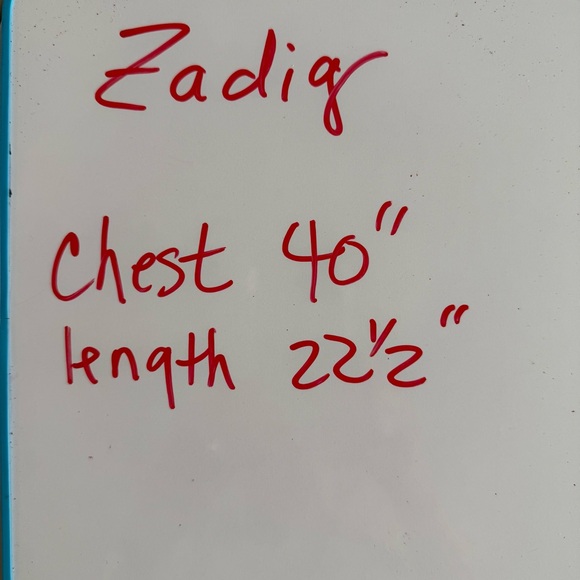 Zadig
Chest 40"
length 22 1/2"